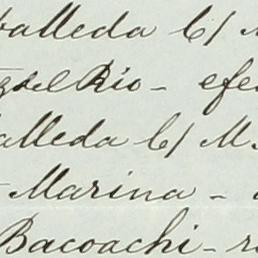 alleda C/ M
del Rio - efe
alleda C/ M.
Marina -
Bacoachi - r